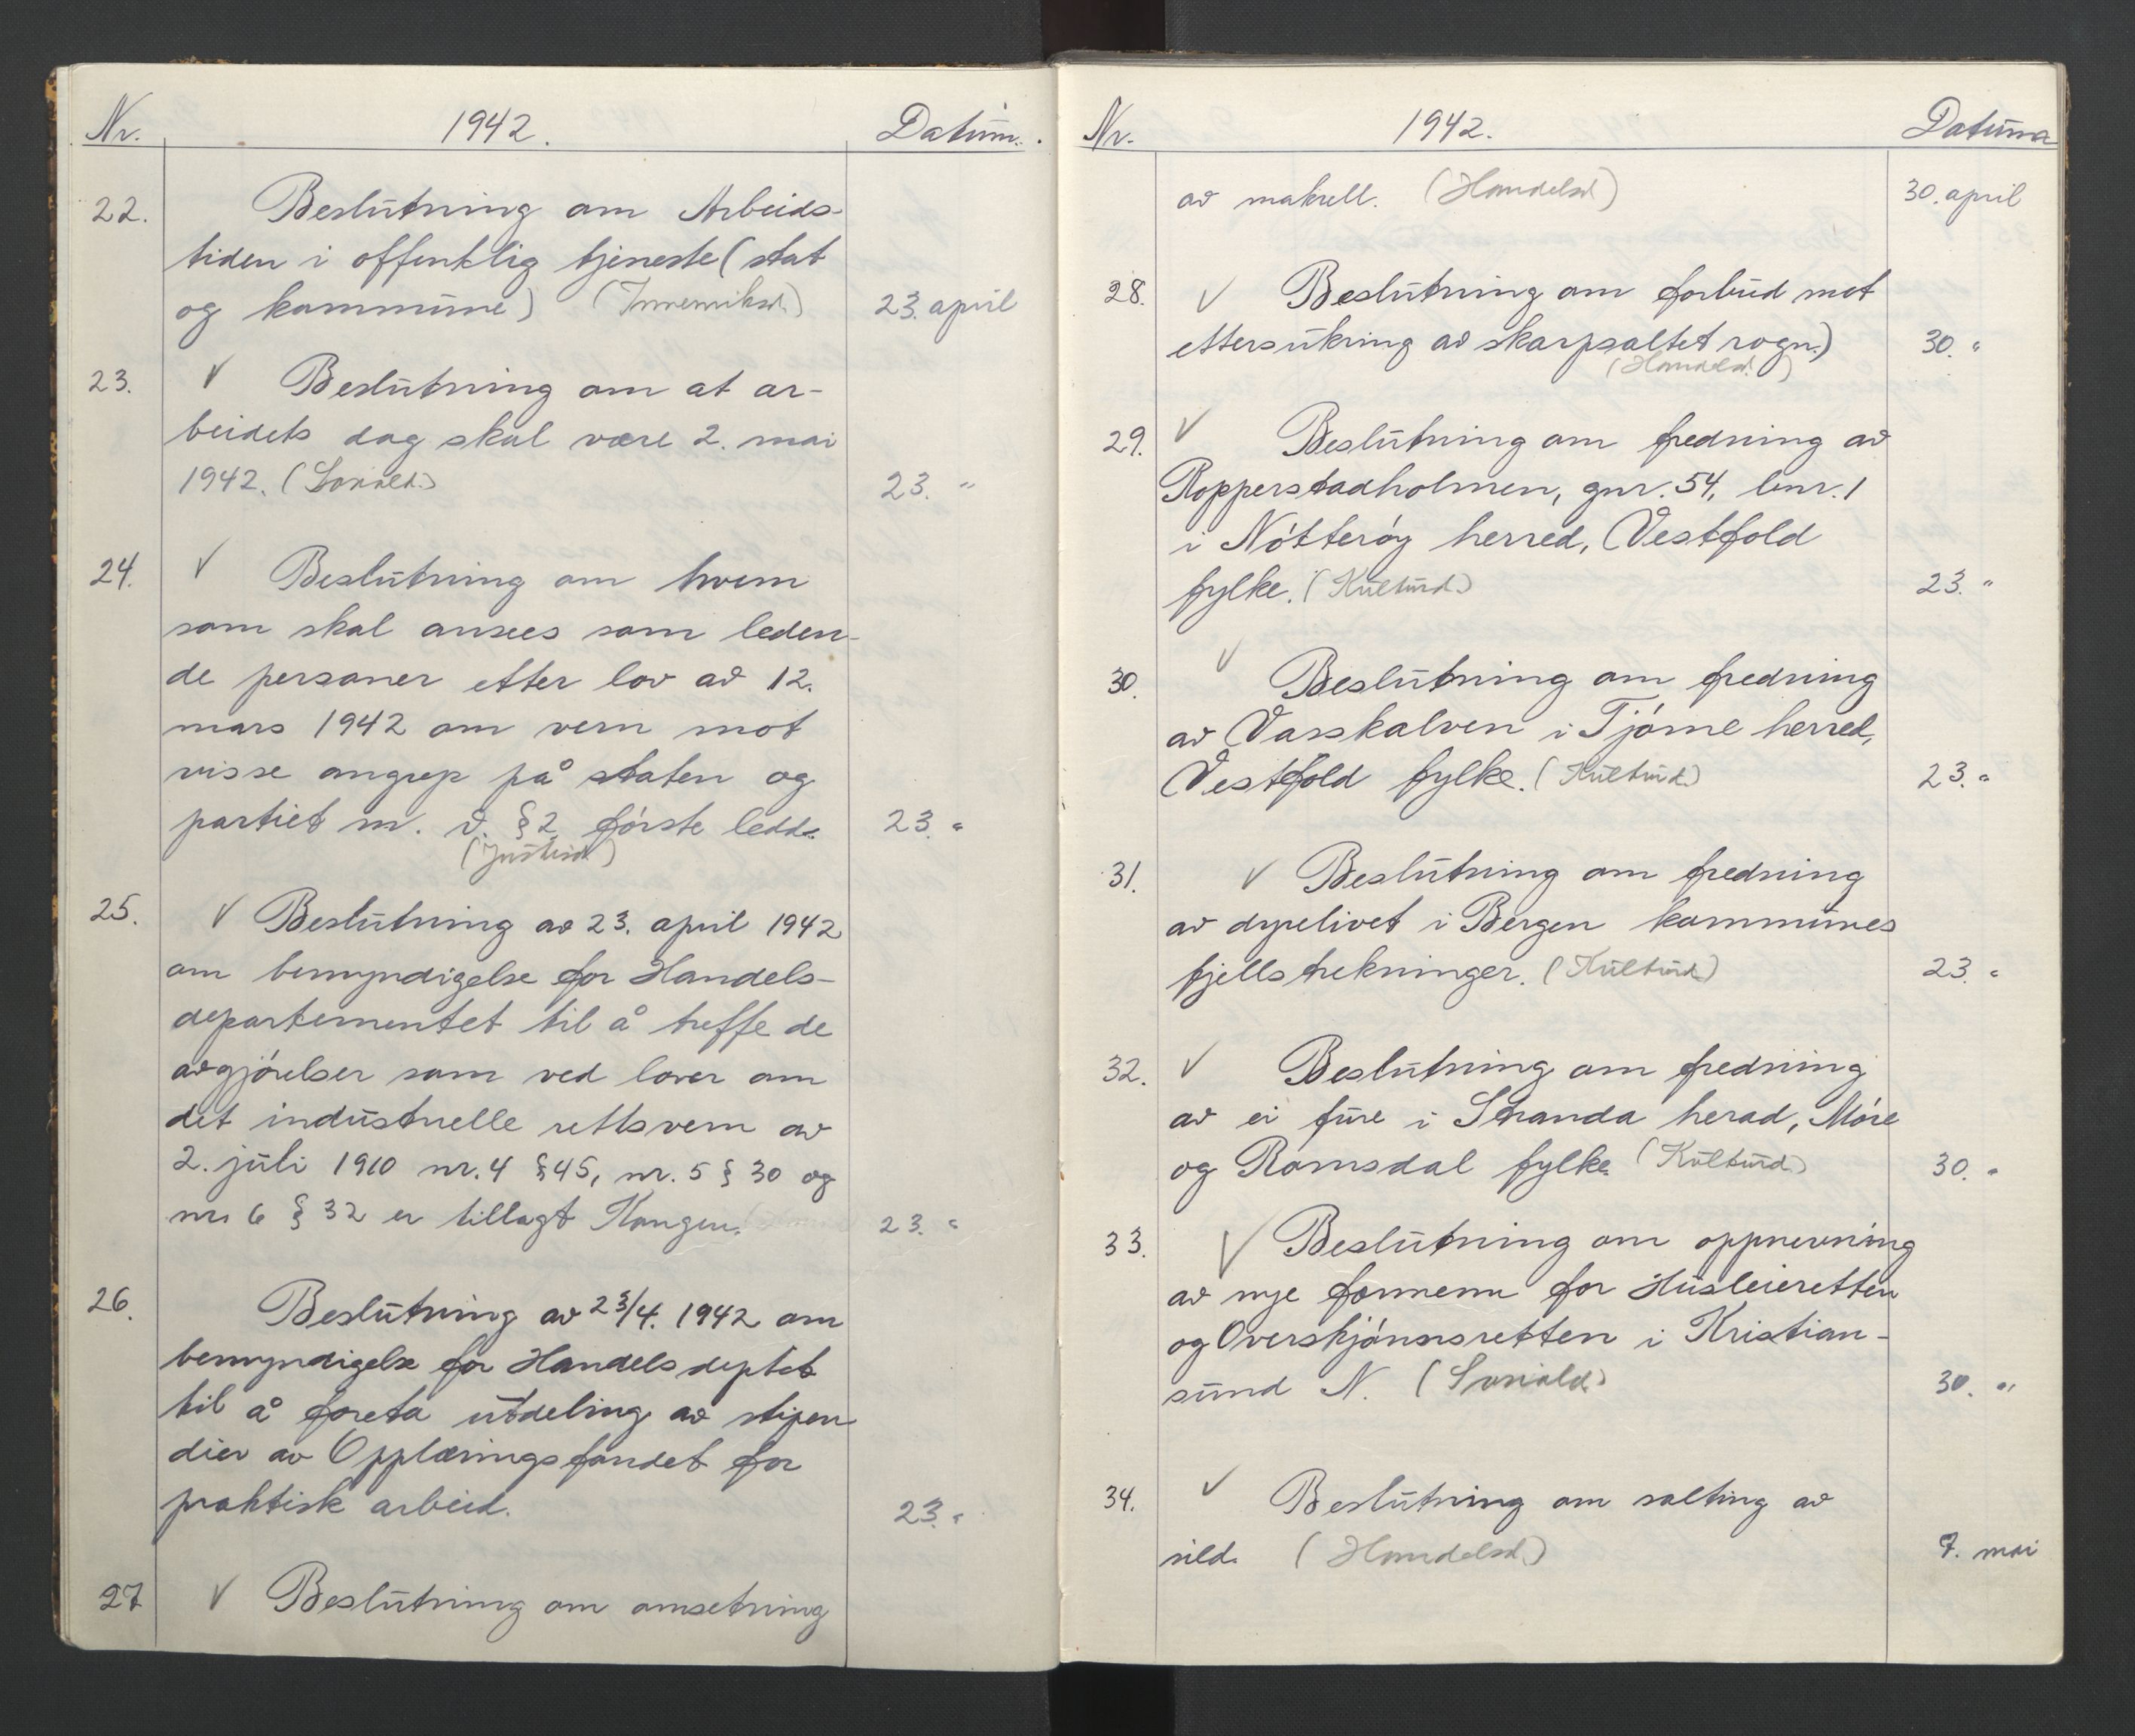 Nr. 1942. Datum.
22. Beslutning om Arbeids-
tiden i offentlig tjeneste (stat
og kommune) (Innenriksd.) 23. april
23. ✓ Beslutning om at ar-
beidets dag skal være 2. mai
1942. (Soriald.) 23. "
24. ✓ Beslutning om hvem
som skal ansees som leden-
de personer etter lov av 12.
mars 1942 om vern mot
visse angrep på staten og
partiet m. v. § 2 første ledd. 23. "
(Justisd.)
25. ✓ Beslutning av 23. april 1942
om bemyndigelse for Handels-
departementet til å treffe de
avgjørelser som ved lover om
det industrielle rettsvern av
2. juli 1910 nr. 4 § 45, nr. 5 § 30 og
nr. 6 § 32 er tillagt Kongen. 23. "
26. Beslutning av 23/4. 1942 om
bemyndigelse for Handelsdeptet
til å foreta utdeling av stipen
dier av Opplæringsfondet for
praktisk arbeid. 23. "
27 ✓ Beslutning om omsetning
Nr. 1942. Datum
av makrell. (Handelsd.) 30. april
28. ✓ Beslutning om forbud mot
ettersukring av skarpsaltet rogn.) 30. "
(Handelsd.)
29. ✓ Beslutning om fredning av
Ropperstadholmen, gnr. 54, bnr. 1
i Nøtterøy herred, Vestfold
fylke. (Kulturd.) 23. "
30. ✓ Beslutning om fredning
av Vasskalven i Tjøme herred,
Vestfold fylke. (Kulturd.) 23. "
31. ✓ Beslutning om fredning
av dyrelivet i Bergen kommunes
fjellstrekninger. (Kulturd.) 23. "
32. ✓ Beslutning om fredning
av ei fure i Stranda herad, Møre
og Romsdal fylke. (Kulturd.) 30. "
33. ✓ Beslutning om oppnevning
av nye formenn for Husleieretten
og Overskjønnsretten i Kristian-
sund N. (Sosiald.) 30. "
34. ✓ Beslutning om salting av
sild. (Handelsd.) 7. mai